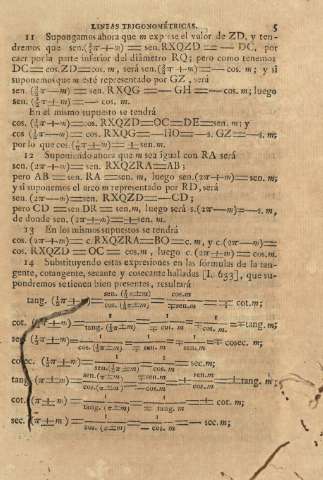 LINEAS TRIGONOMÉTRICAS. 5
11 Supongamos ahora que m exprese el valor de ZD, y ten-
dremos que sen. π+m) = sen. RXQZD = — DC, por
caer por la parte inferior del diámetro RQ; pero como tenemos
DC = cos. ZD = cos. m, será sen. π+m) = — cos. m; y si
suponemos que m esté representado por GZ, será
sen. π—m) = sen. RXQG = — GH = — cos. m; luego
sen. = — cos. m.
En el mismo supuesto se tendrá
cos. π+m) = cos. RXQZD = OC = DE = sen. m; y
cos. π—m) = cos. RXQG = —HO = —s. GZ = —s. m;
por lo que cos. = ±sen. m.
12 Suponiendo ahora que m sea igual con RA será
sen. (2π+m) = sen. RXQZRA = AB;
pero AB = sen. RA = sen. m, luego sen. (2π+m) = sen. m;
y si suponemos el arco m representado por RD, será
sen. (2π—m) = sen. RXQZD = —CD;
pero CD = sen. DR = sen. m, luego será s. (2π—m) = —s. m,
de donde sen. (2π±m) = ±sen. m.
13 En los mismos supuestos se tendrá
cos. (2π+m) = c. RXQZRA = BO = c. m, y c. (2π—m) =
cos. RXQZD = OC = cos. m, luego c. (2π±m) = cos. m.
14 Substituyendo estas expresiones en las fórmulas de la tan-
gente, cotangente, secante y cosecante halladas [I. 633], que su-
pondremos se tienen bien presentes, resultará
tang. cos. m = ∓ cot. m;
cot. = ∓tang. m;
sec. cosec. m;
cosec. sec. m;
tang. (π±m) = = ± tang. m;
cot. (π±m) = = ± cot. m;
sec. (π±m) = = — sec. m;